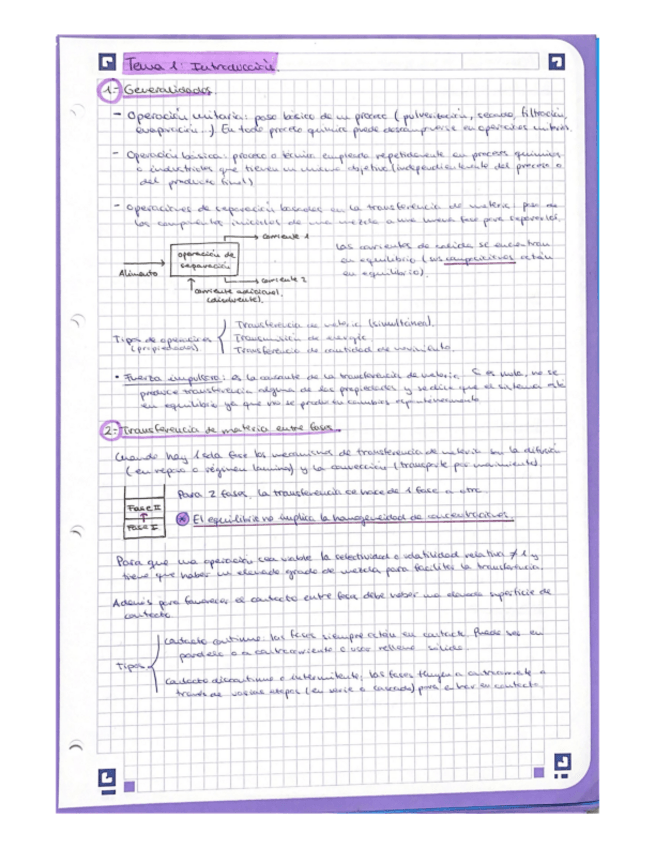 Tema 1: Introducción.
1- Generalidades
- Operación unitaria: paso básico de un proceso (pulverización, secado, filtración,
evaporación...) En todo proceso químico puede descomponerse en operaciones unitarias.
- Operación básica: proceso o técnica empleado repetidamente en procesos químicos
o industriales que tienen un mismo objetivo (independientemente del proceso o
del producto final)
- Operaciones de separación basadas en la transferencia de materia: paso de
los componentes iniciales de una mezcla a una nueva fase para separarlos.
Alimento
operación de
separación
corriente 1
corriente 2
corriente adicional
(disolvente).
Las corrientes de salida se encuentran
en equilibrio (sus composiciones están
en equilibrio).
Tipos de operaciones
(propiedades)
Transferencia de materia (simultánea).
Transmisión de energía.
Transferencia de cantidad de movimiento.
• Fuerza impulsora: es la causante de la transferencia de materia. Si es nula, no se
produce transferencia alguna de las propiedades y se dice que el sistema está
en equilibrio ya que no se producen cambios espontáneamente
2- Transferencia de materia entre fases.
Cuando hay 1 sola fase los mecanismos de transferencia de materia son la difusión
(en reposo o régimen laminar) y la convección (transporte por movimiento).
Fase II
Fase I
Para 2 fases, la transferencia se hace de 1 fase a otra.
* El equilibrio no implica la homogeneidad de concentraciones.
Para que una operación sea viable la selectividad o volatilidad relativa ≠ 1 y
tiene que haber un elevado grado de mezcla para facilitar la transferencia.
Además para favorecer el contacto entre fases debe haber una elevada superficie de
contacto.
Tipos
Contacto continuo: las fases siempre están en contacto. Puede ser en
paralelo o a contracorriente o usar relleno sólido.
Contacto discontinuo o intermitente: las fases fluyen a contracorriente a
través de varias etapas (en serie o cascada) para entrar en contacto.